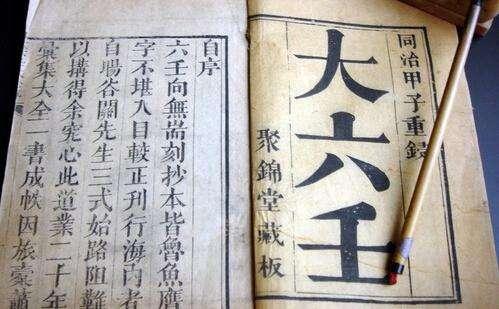 同治甲子重鐫
大六壬
聚錦堂藏板
自序
六壬向無耑刻抄本皆魯魚
字不堪入目較正刊行海內者
自塲谷關先生三式始路阻難
以搆得余究心此道業二十年
彙集大全一書成帙因旅橐蕭